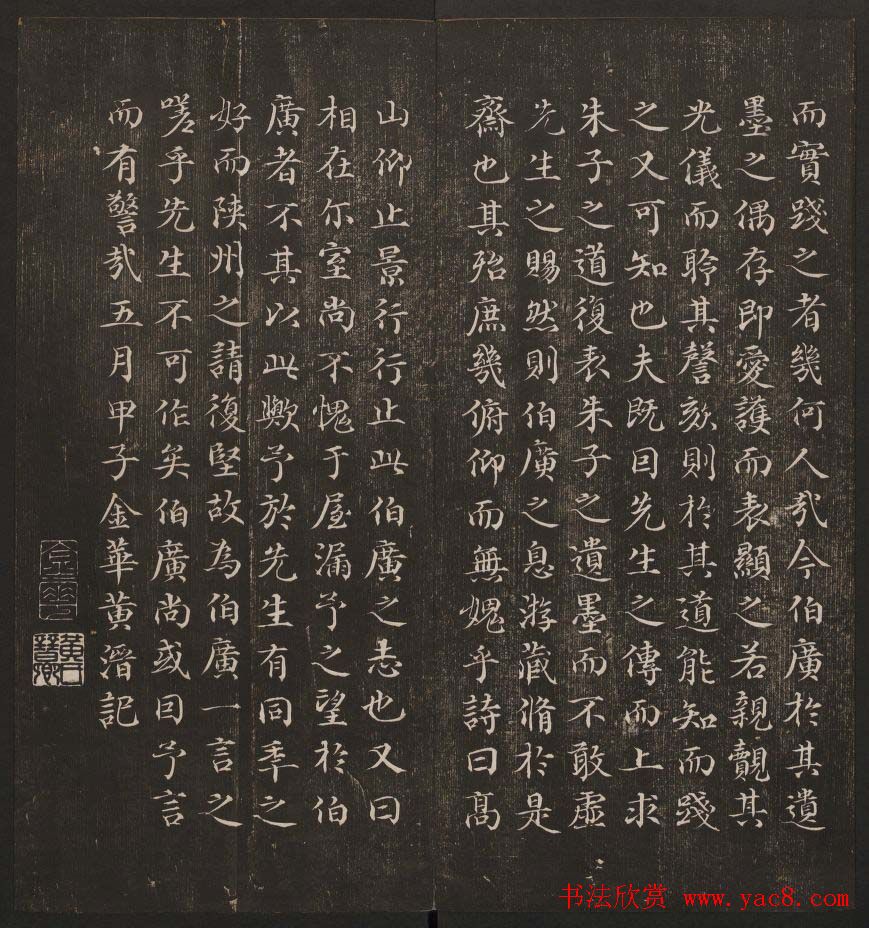 而實踐之者幾何人哉今伯廣於其遺
墨之偶存即愛護而表顯之若親覿其
光儀而聆其謦欬則於其道能知而踐
之又可知也夫既因先生之傳而上求
朱子之道復表朱子之遺墨而不敢虛
先生之賜然則伯廣之息游藏脩於是
齋也其殆庶幾俯仰而無媿乎詩曰高
山仰止景行行止此伯廣之志也又曰
相在尔室尚不愧于屋漏予之望於伯
廣者不其以此歟予於先生有同年之
好而陝州之請復堅故為伯廣一言之
嗟乎先生不可作矣伯廣尚或因予言
而有警哉五月甲子金華黄溍記
金華
黄晉卿
书法欣赏 www.yac8.com